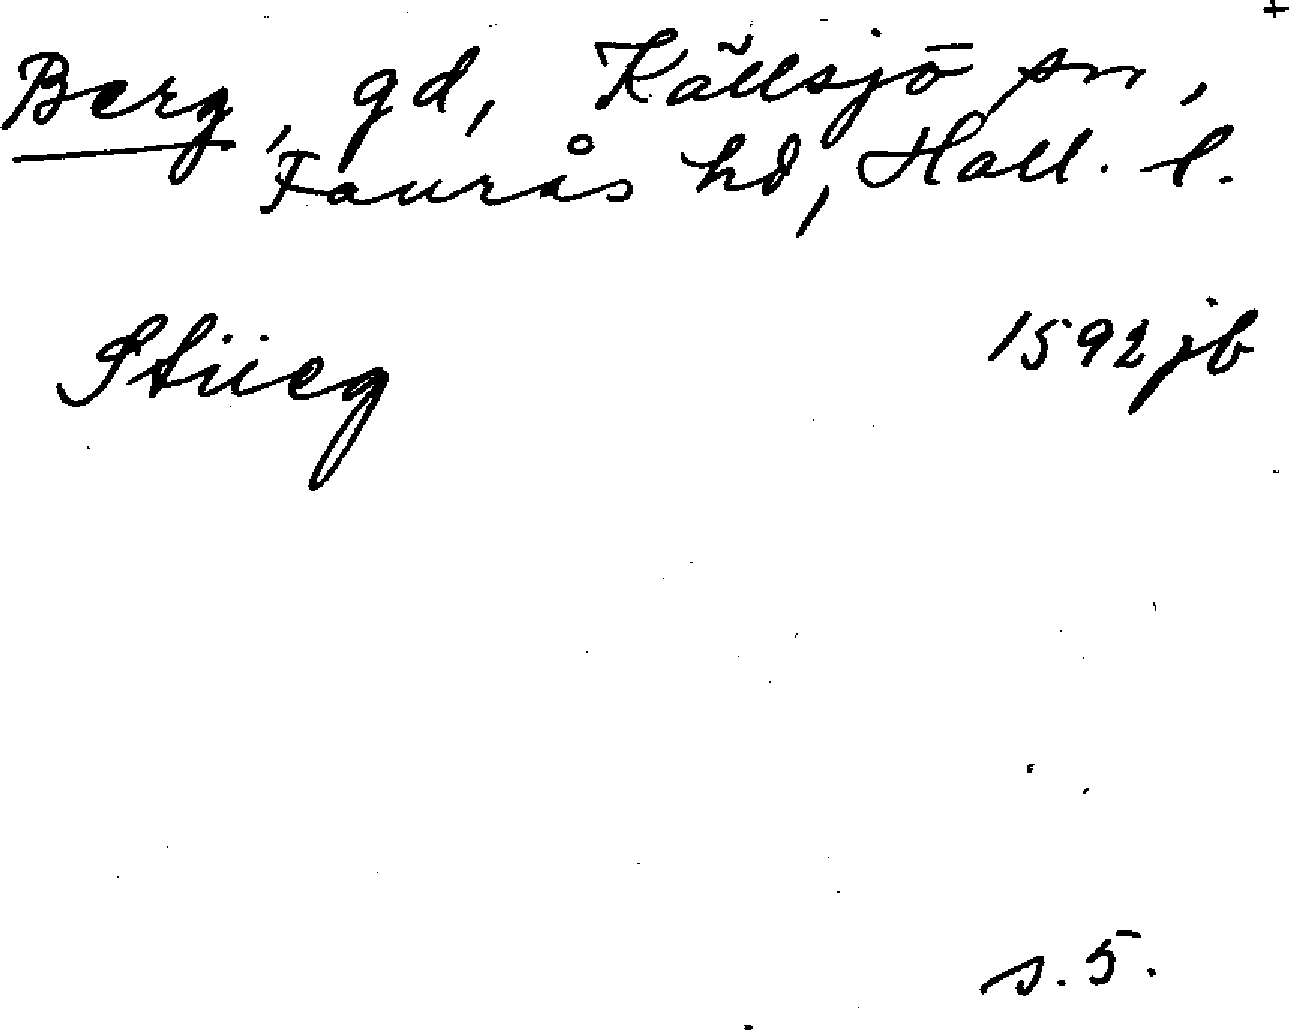 +
Berg, gd, Källsjö sn,
Faurås hd, Hall. l.
Stüeg 1592 jb
s. 5.